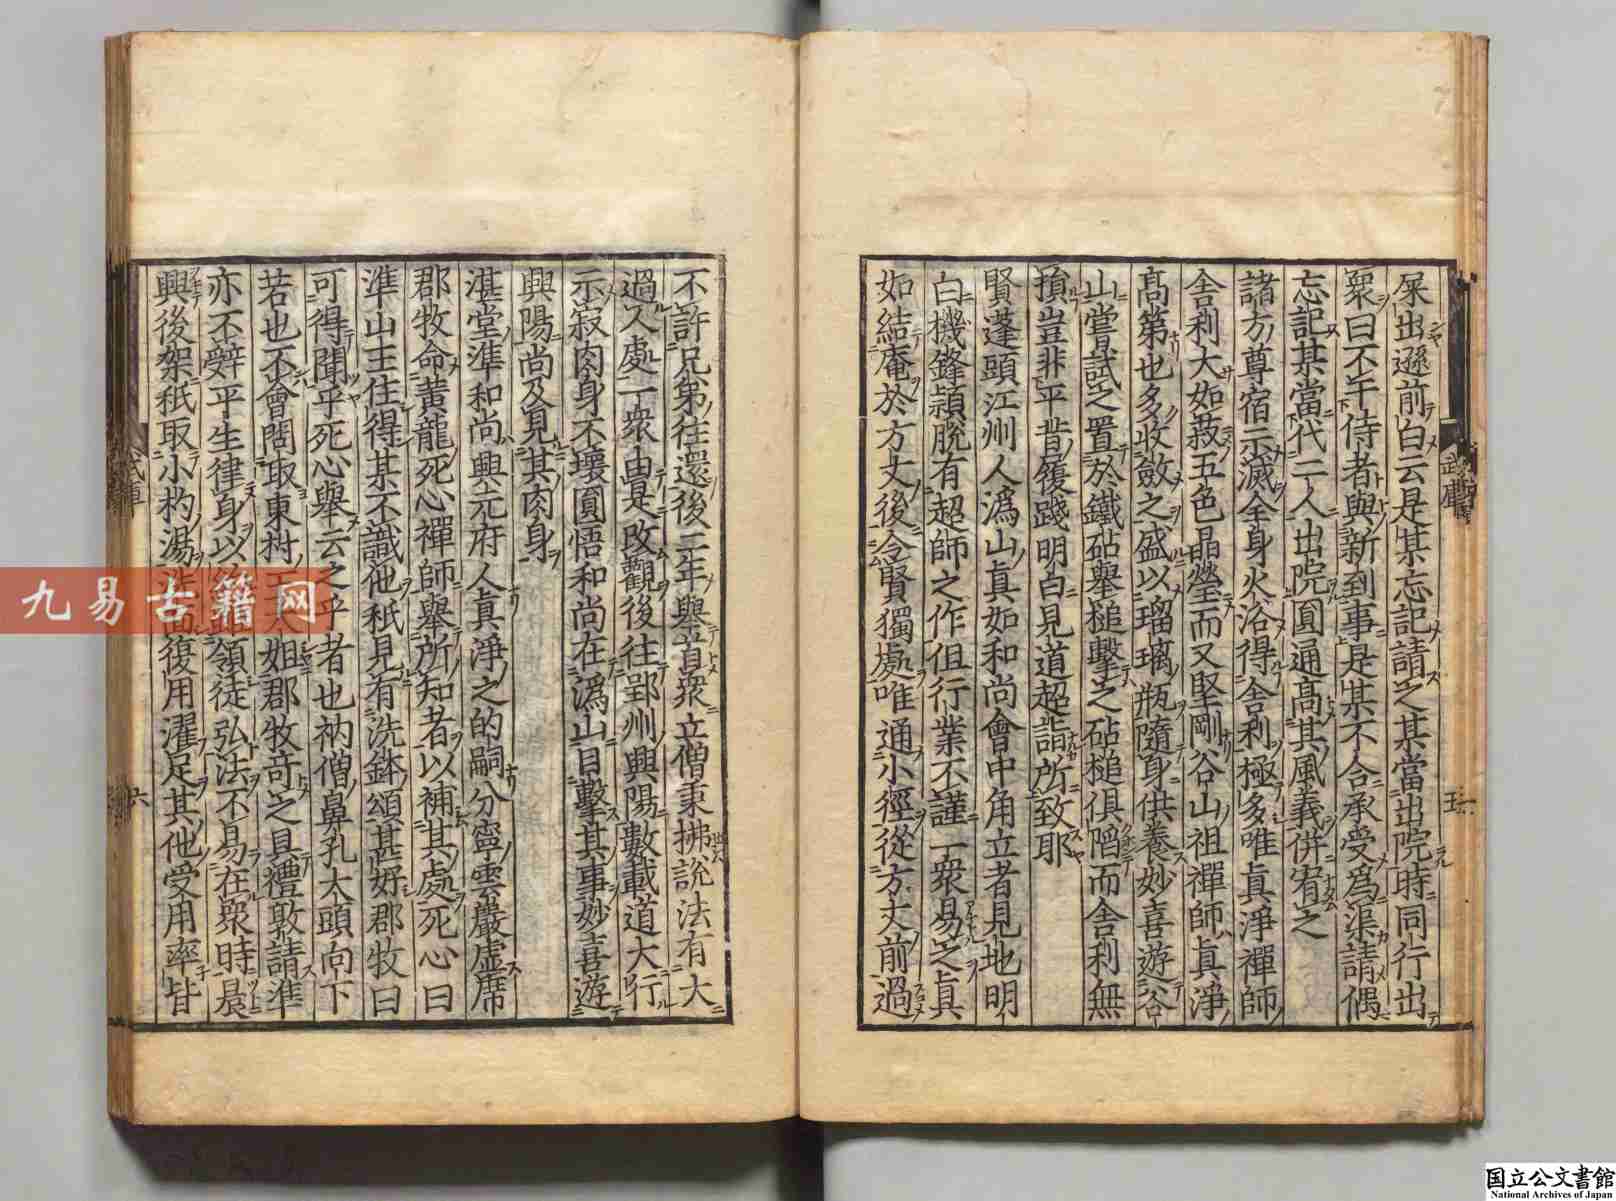 屎出遜前白云是某忘記請之某當出院時同行出
衆曰不午侍者與新到事是某不合承受爲渠請偶
忘記某當代二人出院圓通高其風義併宥之
諸方尊宿示滅全身火浴得舍利極多唯眞淨禪師
舍利大如菽五色晶瑩而又堅剛谷山祖禪師眞淨
高第也多收斂之盛以瑠璃瓶隨身供養妙喜遊谷
山嘗試之置於鐵砧擧槌擊之砧槌俱陷而舍利無
損豈非平昔履踐明白見道超詣所致耶
賢蓬頭江州人潙山眞如和尚會中角立者見地明
白機鋒頴脫有超師之作但行業不謹一衆易之眞
如結庵於方丈後令賢獨處唯通小徑從方丈前過
不許兄弟往還後二年擧首衆立僧秉拂說法有大
過人處一衆由是改觀後往郢州興陽數載道大行
示寂肉身不壞圓悟和尚在潙山目擊其事妙喜遊
興陽尚及見其肉身
湛堂準和尚興元府人眞淨之的嗣分寧雲巖虛席
郡牧命黃龍死心禪師擧所知者以補其處死心曰
準山主住得某不識他秖見有洗鉢頌甚好郡牧曰
可得聞乎死心擧云之乎者也衲僧鼻孔大頭向下
若也不會問取東村王大姐郡牧奇之具禮敦請準
亦不辭平生律身以領徒弘法不易在衆時晨
興後架秖取小杓湯洗面復用濯足其他受用率皆
武庫
五
六
九易古籍网
国立公文書館
National Archives of Japan